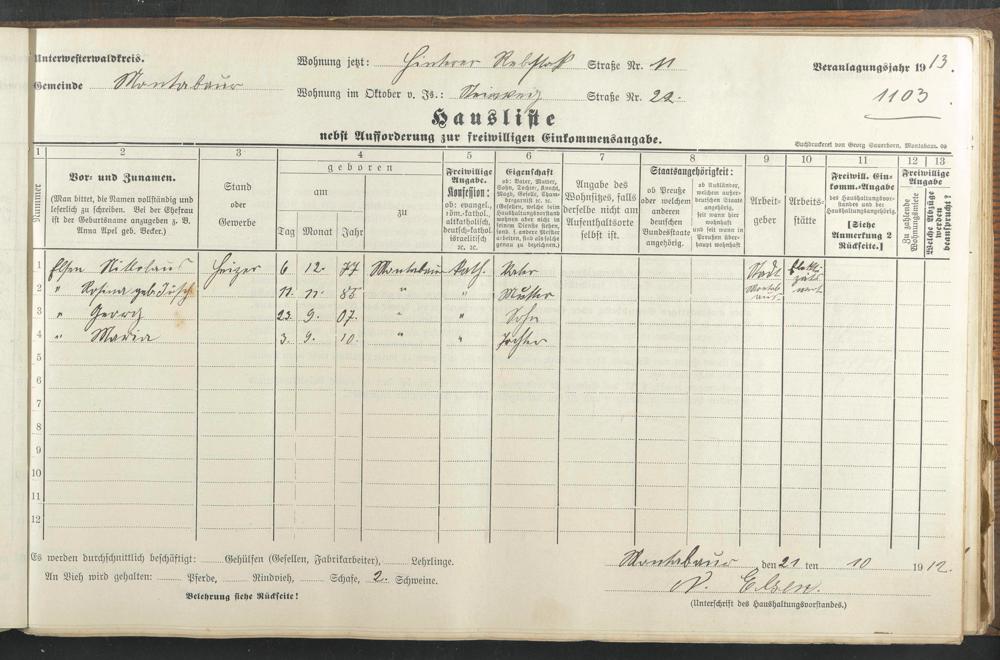 Unterwesterwaldkreis.
Wohnung jetzt: Hinterer Rebstock Straße Nr. 11
Veranlagungsjahr 1913.
Gemeinde Montabaur
Wohnung im Oktober v. Js.: Steinweg Straße Nr. 22.
1103
Hausliste
nebst Aufforderung zur freiwilligen Einkommensangabe.
Buchdruckerei von Georg Sauerborn, Montabaur.
1 2 3 4 5 6 7 8 9 10 11 12 13
Nummer
Vor- und Zunamen.
(Man bittet, die Namen vollständig und
leserlich zu schreiben. Bei der Ehefrau
ist der Geburtsname anzugeben z. B.
Anna Apel geb. Becker.)
Stand
oder
Gewerbe
geboren
am
zu
Tag Monat Jahr
Freiwillige
Angabe.
Konfession:
ob: evangel.,
röm.-kathol.,
altkatholisch,
deutsch-kathol.
israelitisch
ꝛc. ꝛc.
Eigenschaft
ob: Vater, Mutter,
Sohn, Tochter, Knecht,
Magd, Geselle, Cham-
bergarnist ꝛc.:
(Gesellen, welche beim
Haushaltungsvorstand
wohnen aber nicht in
seinem Dienste stehen,
sind als solche
genau zu bezeichnen.)
Angabe des
Wohnsitzes, falls
derselbe nicht am
Aufenthaltsorte
selbst ist.
Staatsangehörigkeit:
ob Preuße
oder welchem
anderen
deutschen
Bundesstaate
angehörig.
ob Ausländer,
welchem außer-
deutschen Staate
angehörig,
seit wann hier
wohnhaft
und seit wann in
Preußen über-
haupt wohnhaft
Arbeit-
geber
Arbeits-
stätte
Freiwill. Ein-
komm.-Angabe
des Haushaltungsvor-
standes und der
Haushaltungsangehörig.
[Siehe
Anmerkung 2
Rückseite.]
Freiwillige
Angabe
Zu zahlende
Wohnungsmiete
Welche Abzüge
werden
beansprucht?
1 Elsen Nikolaus Heizer 6 12. 77 Montabaur kath. Vater Stadt
2 " Rosina geb. 11. 11. 85 " " Mutter Montabaur
3 " Georg 23. 9. 07. " " Sohn
4 " Maria 3. 9. 10. " " Tochter
5
6
7
8
9
10
11
12
Es werden durchschnittlich beschäftigt: Gehülfen (Gesellen, Fabrikarbeiter), Lehrlinge.
An Vieh wird gehalten: Pferde, Rindvieh, Schafe, 2. Schweine.
Belehrung siehe Rückseite!
Montabaur den 21 ten 10 1912.
N. Elsen.
(Unterschrift des Haushaltungsvorstandes.)